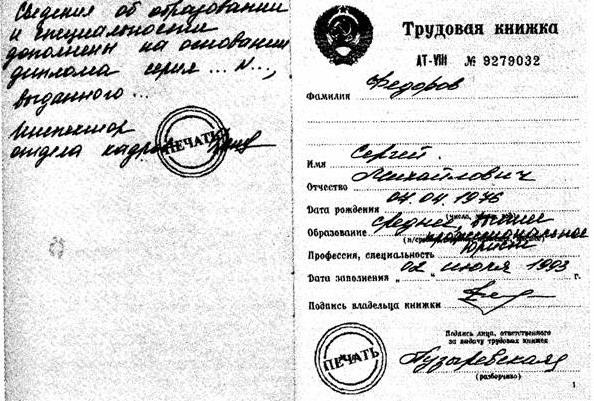 Сведения об образовании
и специальности
дополнены на основании
диплома серия ... N...,
выданного ...
Инспектор
отдела кадров
ПЕЧАТЬ
Трудовая книжка
АТ-VIII № 9279032
Федоров
Фамилия
Имя Сергей
Отчество Михайлович
Дата рождения 04.04.1976
Образование среднее, высшее
профессиональное
Профессия, специальность юрист
Дата заполнения „02" июля 1993 г.
Подпись владельца книжки
Подпись лица, ответственного
за выдачу трудовых книжек
ПЕЧАТЬ
Пузыревская
(разборчиво)
1